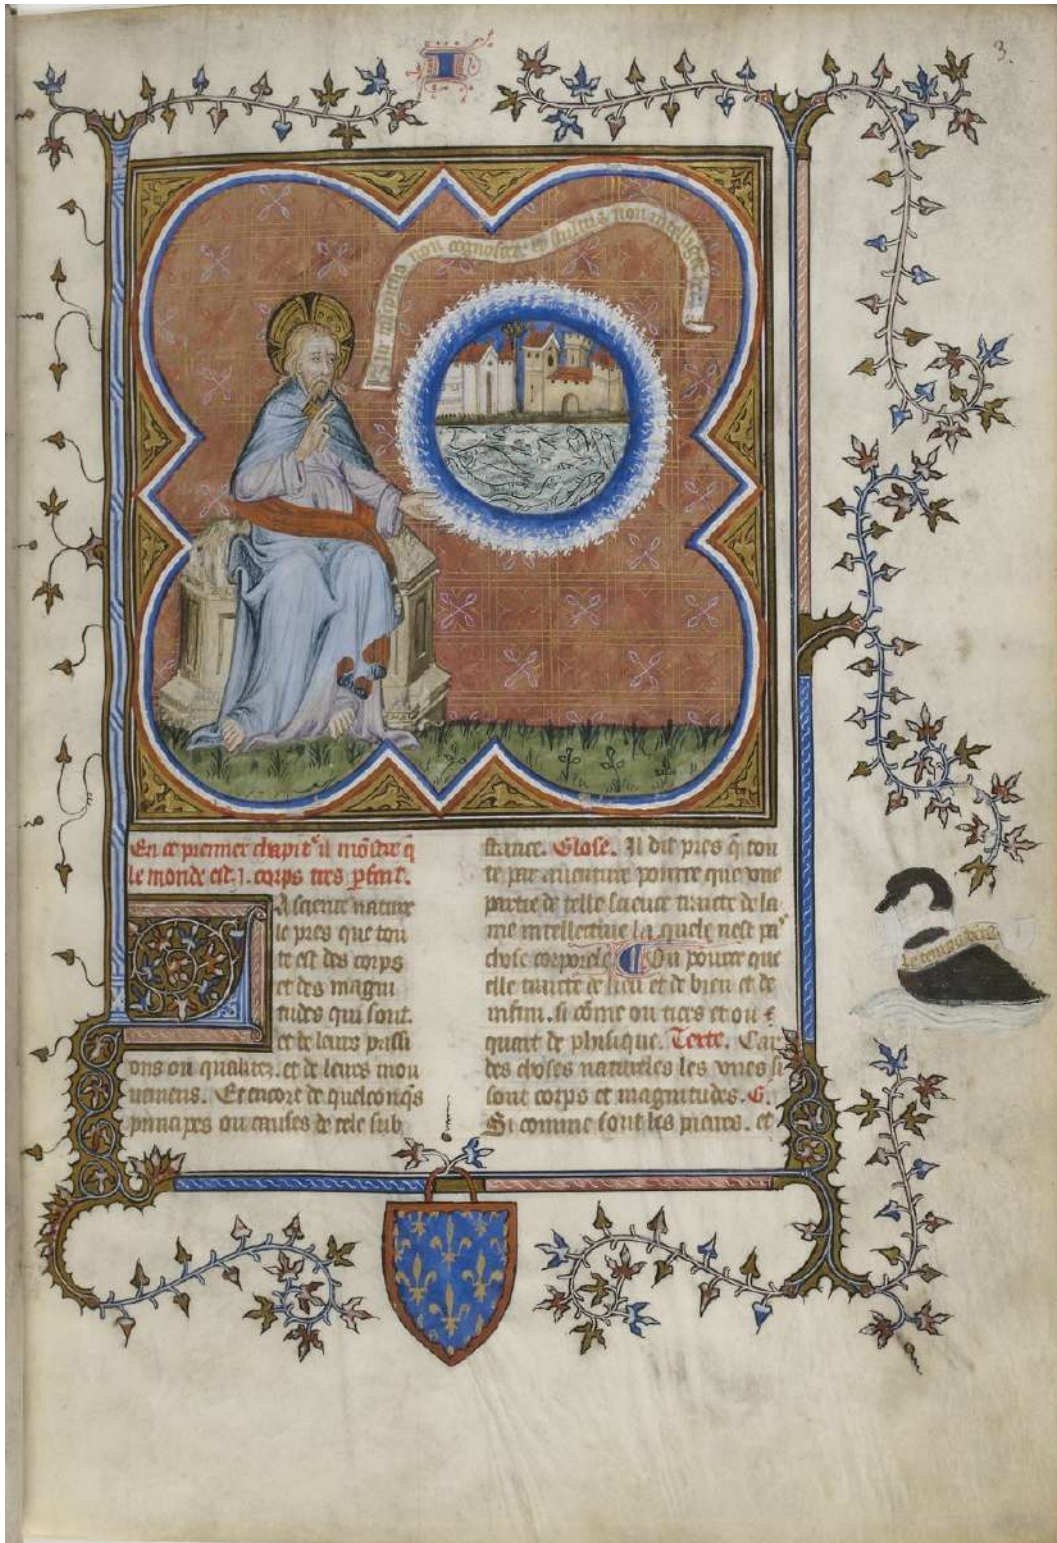 3.
I
Vir insipiens non cognoscet et stultus non intelliget hec
En ce premier chapitᵉ il mõstre q̃
le monde est .j. corps tres p̱fait.
La science nature
le pres que tou
te est des corps
et des magni
tudes qui sont.
et de leurs passi
ons ou qualitez. et de leurs mou
uemens. Et encore de quelconq̃s
principes ou causes de tele sub
stance. Glose. Il dit pres q̃ tou
te par auenture pource que vne
partie de telle science traicte de la
me intellectiue la quele nest pa
chose corporele. Ou pource que
elle traicte de lieu et de vieu et de
infini. si cõme ou tiers et ou
quart de phisique. Texte. Car
des choses natureles les vnes si
sont corps et magnitudes. G.
Si comme sont les pierres. et
le temps venra